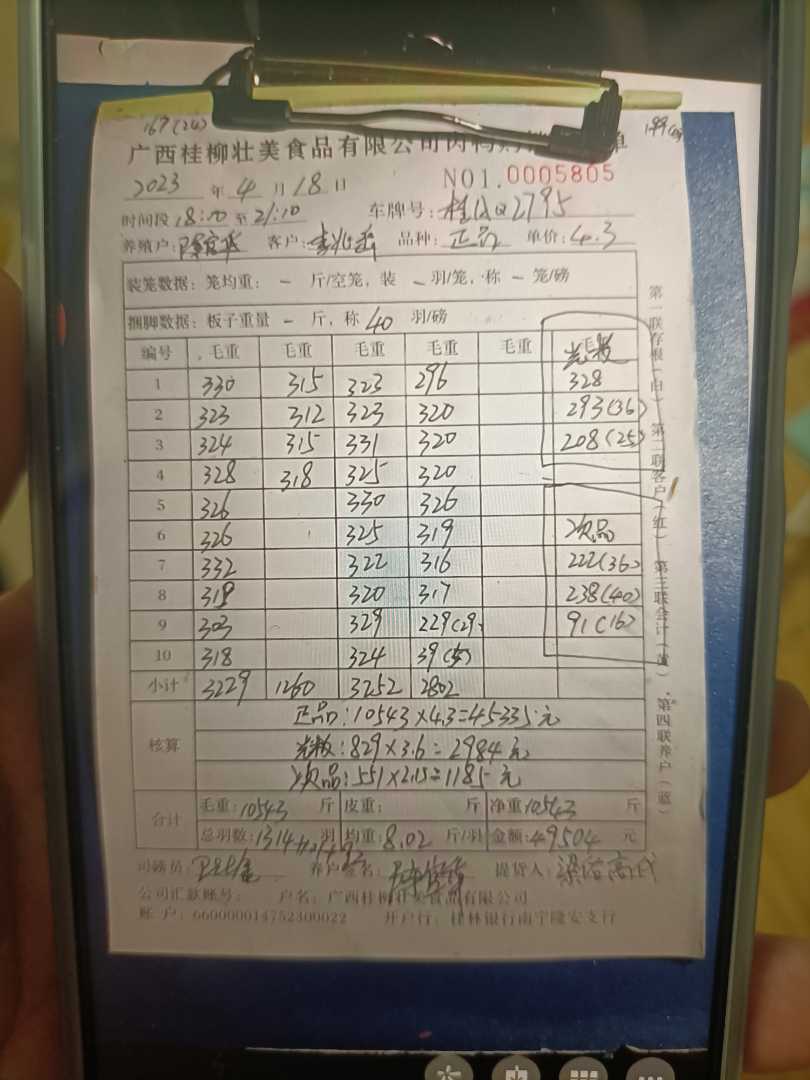 167(20)
广西桂柳壮美食品有限公司肉鸭购销 单
NO1.0005805
2023 年 4 月 18 日
时间段 18:00 至 21:10 车牌号: 2795
养殖户: 客户: 品种: 正品 单价: 4.3
装笼数据: 笼均重: - 斤/空笼, 装 - 羽/笼, 称 - 笼/磅
捆脚数据: 板子重量 - 斤, 称 40 羽/磅
编号 毛重 毛重 毛重 毛重 毛重
1 330 315 323 296 328
2 323 312 323 320 293(36)
3 324 315 331 320 208(25)
4 328 318 325 320
5 326 330 326
6 326 325 319 次品
7 332 322 316 222(36)
8 319 320 317 238(40)
9 303 329 229(29) 91(16)
10 318 324 39(5)
小计 3229 1260 3252 2802
核算
正品: 10543×4.3=45335元
829×3.6=2984元
次品: 551×2.15=1185元
合计
毛重: 10543 斤 皮重: 斤 净重 10543 斤
总羽数: 1314 羽 均重: 8.02 斤/羽 金额: 49504 元
司磅员: 养户签名: 提货人:
公司汇款账号: 户名: 广西桂柳壮美食品有限公司
账 户: 660000014752300022 开户行: 桂林银行南宁隆安支行
第一联存根(白) 第二联客户(红) 第三联会计(黄) 第四联养户(蓝)